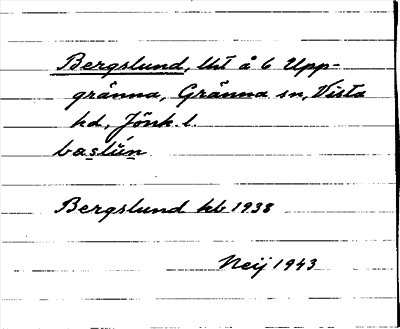 Bergslund, lht å 6 Upp-
gränna, Gränna sn, Vista
hd, Jönk. l.
baslún
Bergslund kb 1938
Neij 1943